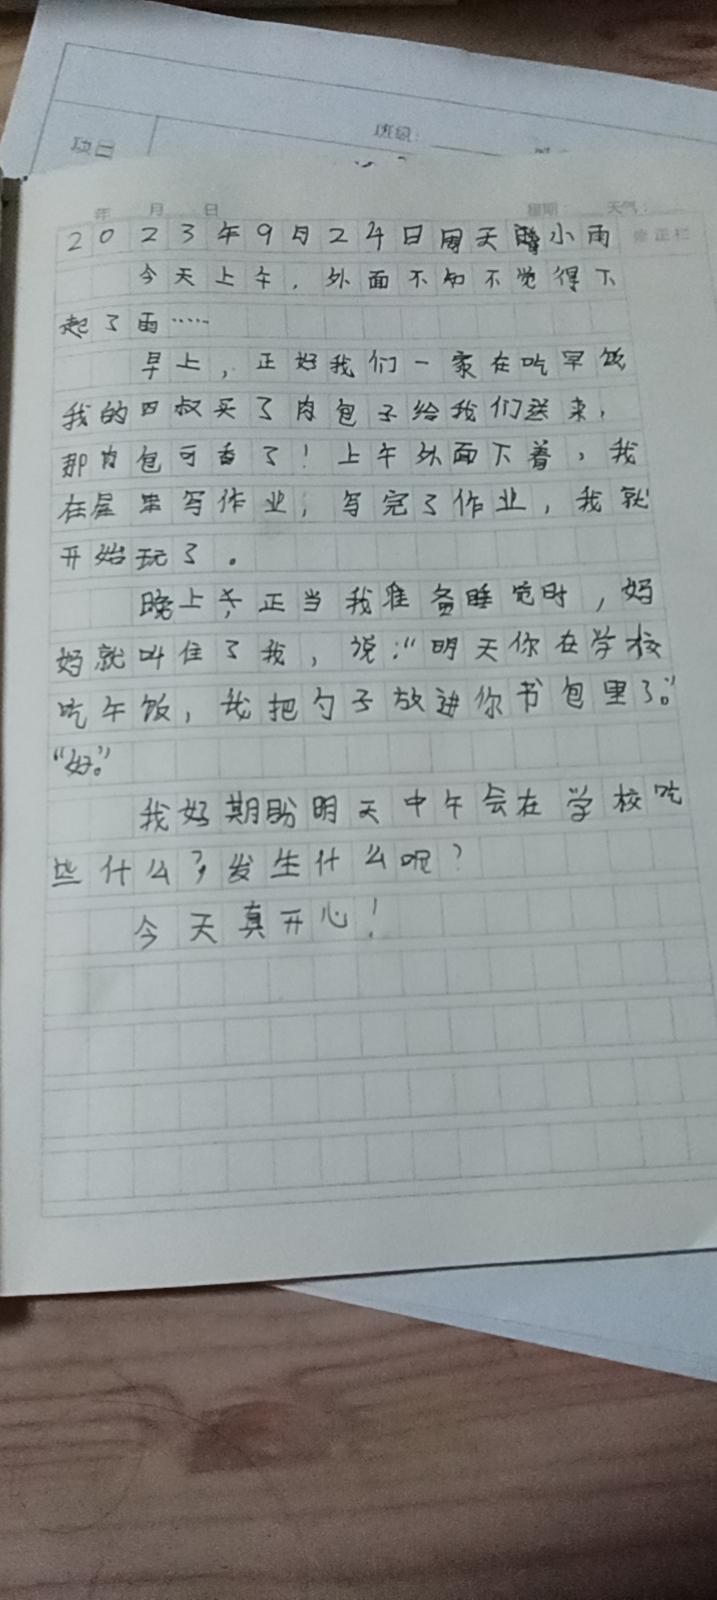 班级：
项目
年 月 日 星期： 天气：
2023年9月24日周天小雨 修正栏
今天上午，外面不知不觉得下
起了雨……
早上，正好我们一家在吃早饭
我的四叔买了肉包子给我们送来，
那肉包可香了！上午外面下着，我
在屋里写作业，写完了作业，我就
开始玩了。
晚上，正当我准备睡觉时，妈
妈就叫住了我，说：“明天你在学校
吃午饭，我把勺子放进你书包里了。”
“好。”
我好期盼明天中午会在学校吃
些什么？发生什么呢？
今天真开心！